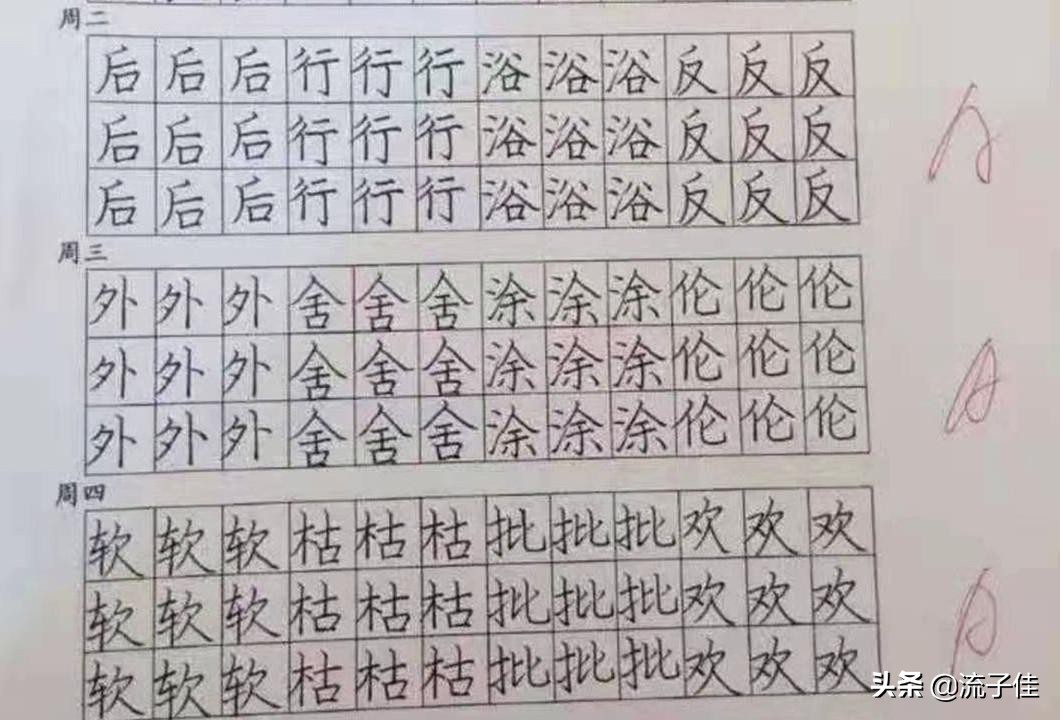 周二
后后后行行行浴浴浴反反反
后后后行行行浴浴浴反反反
后后后行行行浴浴浴反反反
A
周三
外外外舍舍舍涂涂涂伦伦伦
外外外舍舍舍涂涂涂伦伦伦
外外外舍舍舍涂涂涂伦伦伦
A
周四
软软软枯枯枯批批批欢欢欢
软软软枯枯枯批批批欢欢欢
软软软枯枯枯批批批欢欢欢
A
头条 @流子佳